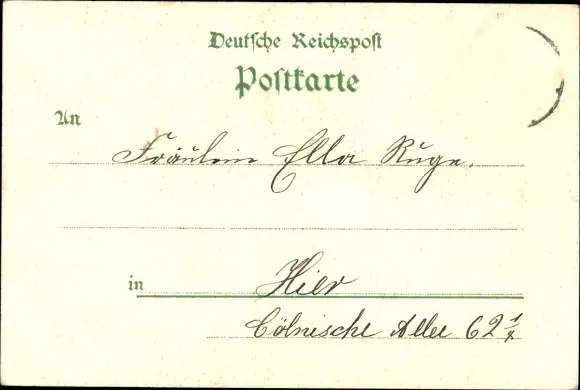 Deutsche Reichspost
Postkarte
An
Fräulein Ella Ruge.
in Hier
Cölnische Allee 62 1/2